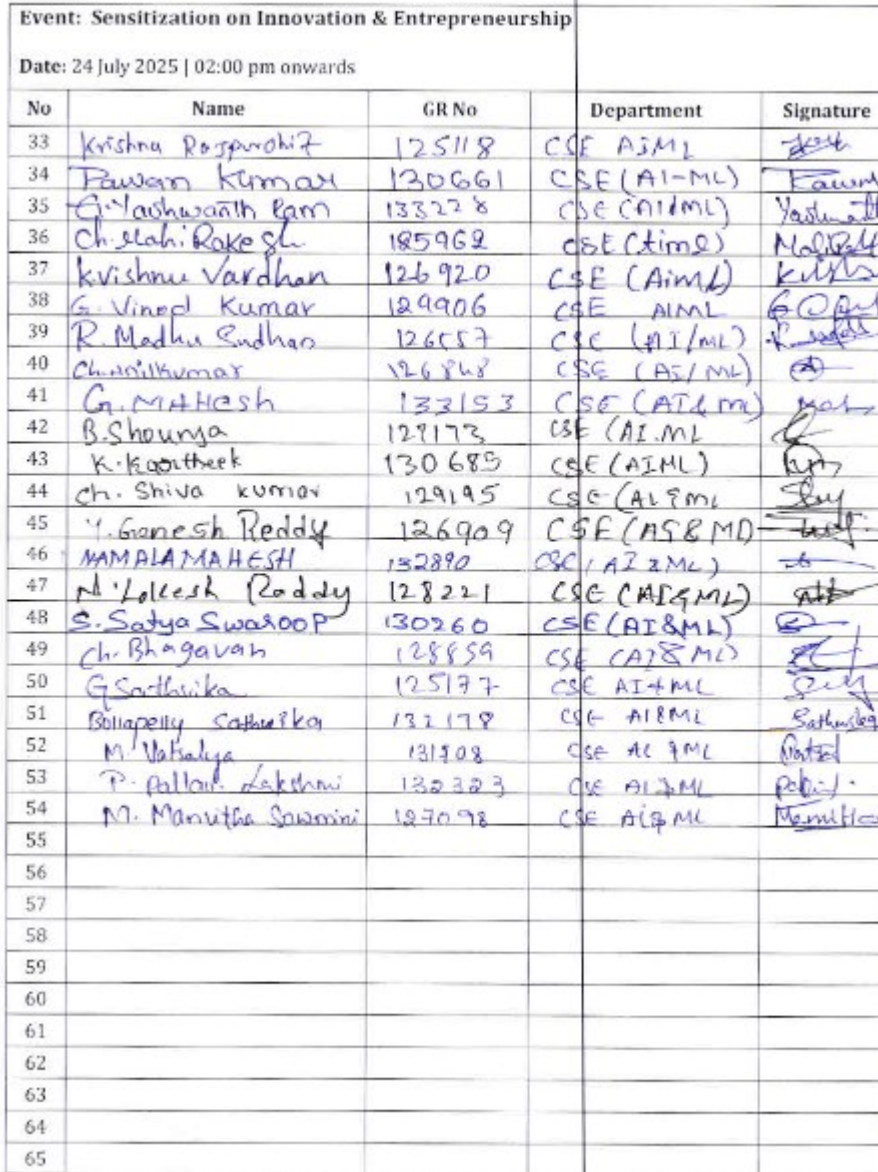 Event: Sensitization on Innovation & Entrepreneurship
Date: 24 July 2025 | 02:00 pm onwards
No Name GR No Department Signature
33 Krishna Rajpurohit 125118 CSE AIML
34 Pawan Kumar 130661 CSE (AI-ML) Pawan
35 G. Yashwanth Ram 133228 CSE (AI&ML)
36 Ch. Mahi Rakesh 185962
37 K.Vishnu Vardhan 126920 CSE (AiML)
38 G. Vinod Kumar 129906 CSE AIML
39 R. Madhu Sudhan CSE (AI/ML)
40 Ch. Anilkumar 126848 CSE (AI/ML)
41 G. MAHesh 133153 CSE (AI& ML)
42 B. Shourya CSE (AI.ML
43 K. Kaartheek 130685 CSE (AIML)
44 Ch. Shiva kumar 129195 CSE (AI&ML
45 Y. Ganesh Reddy 126909
46 NAMALA MAHESH 132890 CSE (AI &ML)
47 N. Lokesh Reddy 128221 CSE (AI&ML)
48 S. Satya Swaroop 130260 CSE (AI&ML)
49 Ch. Bhagavan 128859 CSE (AI&ML)
50 G Sathvika 125177 CSE AI+ML
51 Bollapelly Sathwika 132178 CSE AI&ML
52 M. Vatsalya CSE AI &ML
53 P. Pallavi Lakshmi 132323 CSE AI&ML
54 M. Manvitha Sowmini 127098 CSE AI& ML
55
56
57
58
59
60
61
62
63
64
65